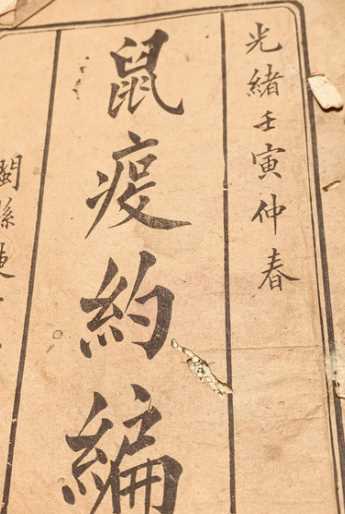 光緒壬寅仲春
鼠疫約編
閩縣